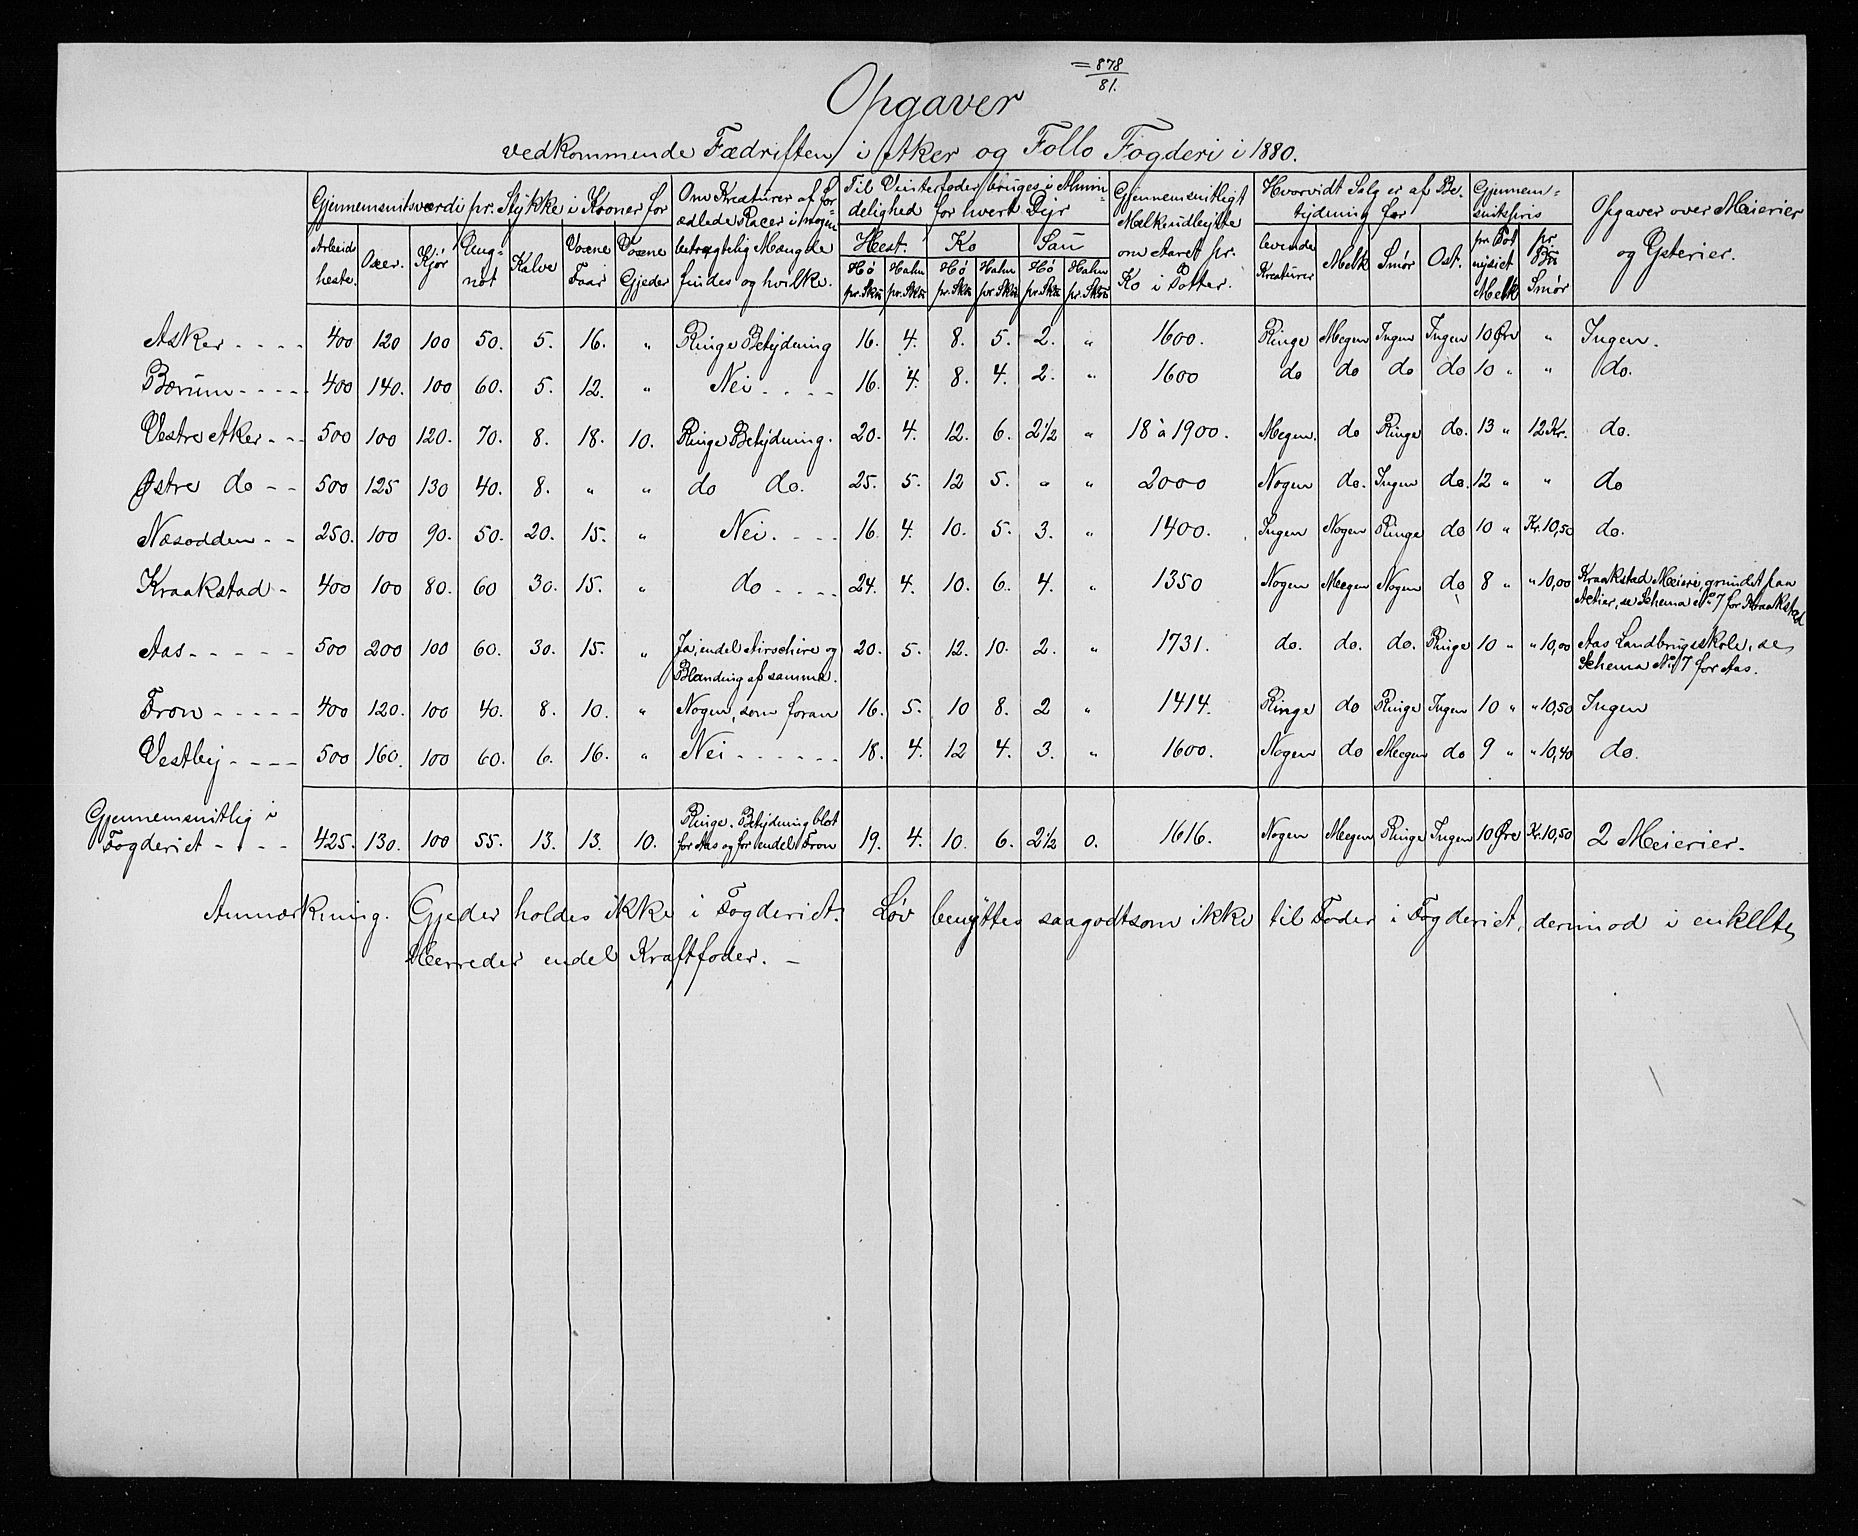 = 878
81.
Opgaver
vedkommende Fædriften i Aker og Follo Fogderi i 1880.
Gjennemsnitsværdi pr. Stykke i Kroner for | Om Kreaturer af for | Til Vinterfoder bruges i Almin- | Gjennemsnitligt | Hvorvidt Salg er af Be- | Gjennem- | Opgaver over Meierier
ædlede Racer i nogen | delighed for hvert Dyr | Melkeudbytte | tydning for | snitspris | og Ysterier.
Arbeids | Oxer. | Kjør | Ung- | Kalve | Voxne | Voxne | betragtelig Mængde | Hest. | Ko | Sau | om Aaret pr. | levende | Melk | Smør | Ost. | pr. Pot | pr.
heste. | nöt | Faar | Gjeder | findes og hvilke. | Hö | Halm | Hö | Halm | Hö | Halm | Ko i Potter. | Kreaturer | nysiet | Smör
pr. Sk℔ | pr. Sk℔ | pr. Sk℔ | pr. Sk℔ | pr. Sk℔ | pr. Sk℔ | Melk
Asker - - - - | 400 | 120 | 100 | 50. | 5. | 16. | " | Ringe Betydning | 16. | 4. | 8. | 5. | 2. | " | 1600. | Ringe | Megen | Ingen | Ingen | 10 Øre | " | Ingen.
Bærum - - - - | 400 | 140. | 100 | 60. | 5. | 12. | " | Nei - - - - | 16. | 4. | 8. | 4. | 2. | " | 1600 | do | do | do | do | 10 " | " | do.
Vestre Aker - - - | 500 | 100 | 120. | 70. | 8. | 18. | 10. | Ringe Betydning. | 20. | 4. | 12. | 6. | 2½ | " | 18 à 1900. | Megen. | do | Ringe | do. | 13 " | 12 Kr. | do.
Østre do - - | 500 | 125 | 130 | 40. | 8. | " | " | do do. | 25. | 5. | 12 | 5. | " | " | 2000 | Nogen | do. | Ingen | do. | 12 " | " | do
Næsodden - - | 250. | 100 | 90. | 50. | 20. | 15. | " | Nei. - - - | 16. | 4. | 10. | 5. | 3. | " | 1400. | Ingen | Nogen | Ringe | do | 10 " | Kr. 10,50 | do.
Kraakstad - | 400 | 100 | 80. | 60 | 30. | 15. | " | do - - - - | 24. | 4. | 10. | 6. | 4. | " | 1350 | Nogen | Megen | Nogen | do | 8 " | " 10,00 | Kraakstad Meieri, grundet paa
Actier, se Schema No 7 for Kraakstad
Aas - - - - - | 500 | 200 | 100 | 60. | 30. | 15. | " | Ja, endel Airschire og | 20. | 5. | 12. | 10. | 2. | " | 1731. | do. | do. | do. | Ringe | 10 " | " 10,00 | Aas Landbrugsskole, se
Blanding af samme. | Schema No 7 for Aas.
Fron - - - - - | 400 | 120. | 100 | 40. | 8. | 10. | " | Nogen, som foran | 16. | 5. | 10 | 8. | 2 | " | 1414. | Ringe | do | Ringe | Ingen | 10 " | " 10,50 | Ingen
Vestby - - - - | 500 | 160. | 100 | 60. | 6. | 16. | " | Nei - - - - - - | 18. | 4. | 12 | 4. | 3. | " | 1600. | Nogen | do | Megen | do | 9 " | " 10,40 | do.
Gjennemsnitlig i | Ringe. Betydning blot
Fogderiet - - - - | 425. | 130. | 100 | 55. | 13. | 13. | 10. | for Aas og for endel Fron | 19. | 4. | 10. | 6. | 2½ | 0. | 1616. | Nogen | Megen | Ringe | Ingen | 10 Øre | Kr. 10,50 | 2 Meierier.
Anmærkning. Gjeder holdes ikke i Fogderiet. Löv benyttes saagodtsom ikke til Foder i Fogderiet, derimod i enkelte
Herreder endel Kraftfoder. -